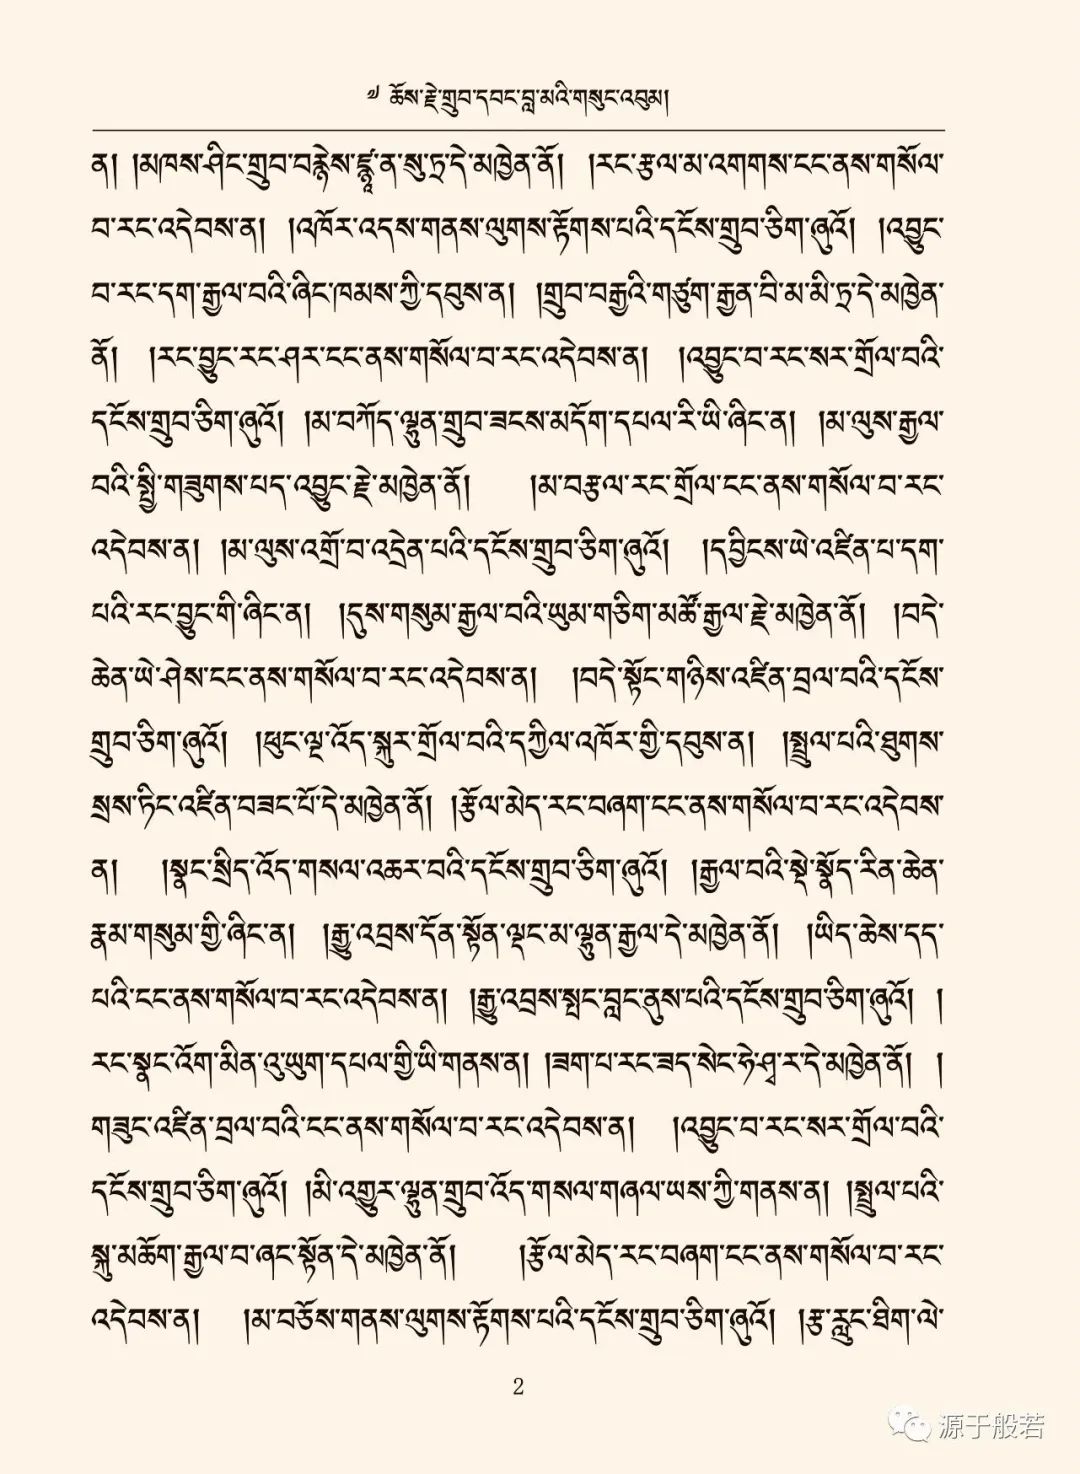 ༡ ཆོས་རྗེ་གྲུབ་དབང་བླ་མའི་གསུང་འབུམ།
ན། །མཁས་ཤིང་གྲུབ་བརྙེས་ཛྙཱ་ན་སུ་ཏྲ་དེ་མཁྱེན་ནོ། །རང་རྩལ་མ་འགགས་ངང་ནས་གསོལ་
བ་རང་འདེབས་ན། །འཁོར་འདས་གནས་ལུགས་རྟོགས་པའི་དངོས་གྲུབ་ཅིག་ཞུའོ། །འབྱུང་
བ་རང་དག་རྒྱལ་བའི་ཞིང་ཁམས་ཀྱི་དབུས་ན། །གྲུབ་བརྒྱའི་གཙུག་རྒྱན་བི་མ་མི་ཏྲ་དེ་མཁྱེན་
ནོ། །རང་བྱུང་རང་ཤར་ངང་ནས་གསོལ་བ་རང་འདེབས་ན། །འབྱུང་བ་རང་སར་གྲོལ་བའི་
དངོས་གྲུབ་ཅིག་ཞུའོ། །མ་བཀོད་ལྷུན་གྲུབ་ཟངས་མདོག་དཔལ་རི་ཡི་ཞིང་ན། །མ་ལུས་རྒྱལ་
བའི་སྤྱི་གཟུགས་པད་འབྱུང་རྗེ་མཁྱེན་ནོ། །མ་བརྩལ་རང་གྲོལ་ངང་ནས་གསོལ་བ་རང་
འདེབས་ན། །མ་ལུས་འགྲོ་བ་འདྲེན་པའི་དངོས་གྲུབ་ཅིག་ཞུའོ། །དབྱིངས་ཡེ་འཛིན་པ་དག་
པའི་རང་བྱུང་གི་ཞིང་ན། །དུས་གསུམ་རྒྱལ་བའི་ཡུམ་གཅིག་མཚོ་རྒྱལ་རྗེ་མཁྱེན་ནོ། །བདེ་
ཆེན་ཡེ་ཤེས་ངང་ནས་གསོལ་བ་རང་འདེབས་ན། །བདེ་སྟོང་གཉིས་འཛིན་བྲལ་བའི་དངོས་
གྲུབ་ཅིག་ཞུའོ། །ཕུང་ལྔ་འོད་སྐུར་གྲོལ་བའི་དཀྱིལ་འཁོར་གྱི་དབུས་ན། །སྤྲུལ་པའི་ཐུགས་
སྲས་ཏིང་འཛིན་བཟང་པོ་དེ་མཁྱེན་ནོ། །རྩོལ་མེད་རང་བཞག་ངང་ནས་གསོལ་བ་རང་འདེབས་
ན། །སྣང་སྲིད་འོད་གསལ་འཆར་བའི་དངོས་གྲུབ་ཅིག་ཞུའོ། །རྒྱལ་བའི་སྡེ་སྣོད་རིན་ཆེན་
རྣམ་གསུམ་གྱི་ཞིང་ན། །རྒྱུ་འབྲས་དོན་སྟོན་ལྡང་མ་ལྷུན་རྒྱལ་དེ་མཁྱེན་ནོ། །ཡིད་ཆེས་དད་
པའི་ངང་ནས་གསོལ་བ་རང་འདེབས་ན། །རྒྱུ་འབྲས་སྤང་བླང་ནུས་པའི་དངོས་གྲུབ་ཅིག་ཞུའོ། །
རང་སྣང་འོག་མིན་འུ་ཡུག་དཔལ་གྱི་ཡི་གནས་ན། །ཟག་པ་རང་ཟད་སེང་ཧེ་ཤྭ་ར་དེ་མཁྱེན་ནོ། །
གཟུང་འཛིན་བྲལ་བའི་ངང་ནས་གསོལ་བ་རང་འདེབས་ན། །འབྱུང་བ་རང་སར་གྲོལ་བའི་
དངོས་གྲུབ་ཅིག་ཞུའོ། །མི་འགྱུར་ལྷུན་གྲུབ་འོད་གསལ་གཞལ་ཡས་ཀྱི་གནས་ན། །སྤྲུལ་པའི་
སྐུ་མཆོག་རྒྱལ་བ་ཞང་སྟོན་དེ་མཁྱེན་ནོ། །རྩོལ་མེད་རང་བཞག་ངང་ནས་གསོལ་བ་རང་
འདེབས་ན། །མ་བཅོས་གནས་ལུགས་རྟོགས་པའི་དངོས་གྲུབ་ཅིག་ཞུའོ། །རྩ་རླུང་ཐིག་ལེ་
2
源于般若